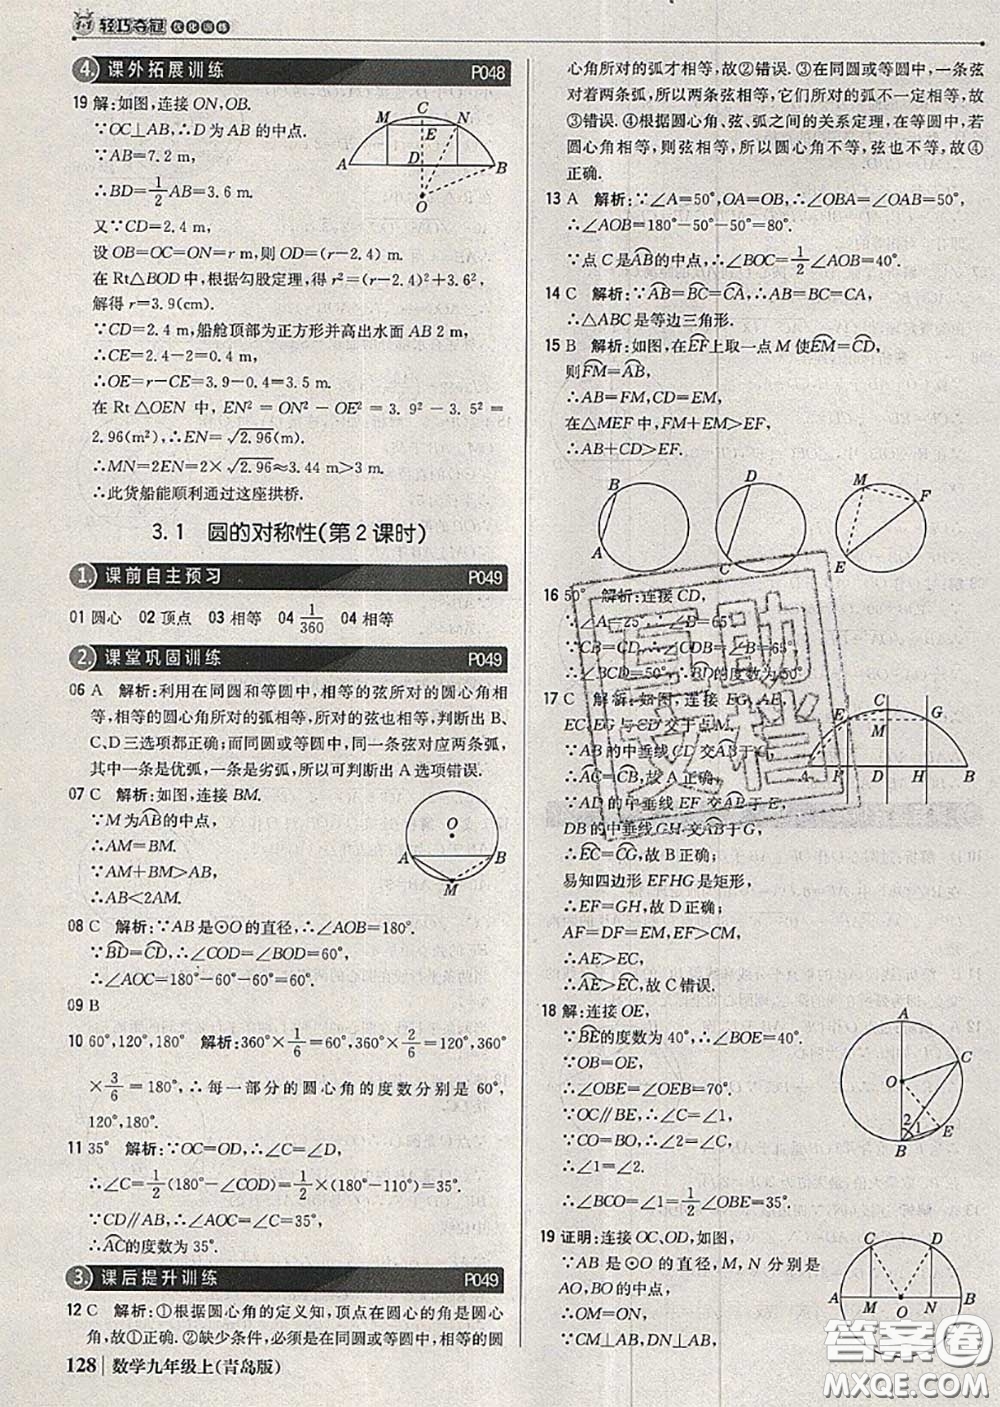 1+1 轻巧夺冠 优化训练
4. 课外拓展训练 P048
19 解:如图,连接ON,OB.
∵OC⊥AB,∴D为AB的中点.
∵AB=7.2 m,
∴BD=1/2AB=3.6 m.
又∵CD=2.4 m,
设OB=OC=ON=r m,则OD=(r-2.4) m.
在Rt△BOD中,根据勾股定理,得r²=(r-2.4)²+3.6²,
解得r=3.9(cm).
∵CD=2.4 m,船舱顶部为正方形并高出水面AB 2 m,
∴CE=2.4-2=0.4(m).
∴OE=r-CE=3.9-0.4=3.5 m.
在Rt△OEN中,EN²=ON²-OE²=3.9²-3.5²=
2.96(m²),∴EN=√2.96(m).
∴MN=2EN=2×√2.96≈3.44 m>3 m.
∴此货船能顺利通过这座拱桥.
A M C E N D B O
3.1 圆的对称性(第2课时)
1. 课前自主预习 P049
01 圆心 02 顶点 03 相等 04 1/360 04 相等
2. 课堂巩固训练 P049
06 A 解析:利用在同圆和等圆中,相等的弦所对的圆心角相
等,相等的圆心角所对的弧相等,所对的弦也相等,判断出B、
C、D三选项都正确;而同圆或等圆中,同一条弦对应两条弧,
其中一条是优弧,一条是劣弧,所以可判断出A选项错误.
07 C 解析:如图,连接BM.
∵M为⌒AB的中点,
∴AM=BM.
∵AM+BM>AB,
∴AB<2AM.
O A B M
08 C 解析:∵AB是⊙O的直径,∴∠AOB=180°.
∵⌒BD=⌒CD,∴∠COD=∠BOD=60°,
∴∠AOC=180°-60°-60°=60°.
09 B
10 60°,120°,180° 解析:360°×1/6=60°,360°×2/6=120°,360°
×3/6=180°,∴每一部分的圆心角的度数分别是60°,
120°,180°.
11 35° 解析:∵OC=OD,∴∠C=∠D,
∴∠C=1/2(180°-∠COD)=1/2×(180°-110°)=35°.
∵CD∥AB,∴∠AOC=∠C=35°,
∴⌒AC的度数为35°.
3. 课后提升训练 P049
12 C 解析:①根据圆心角的定义知,顶点在圆心的角是圆心
角,故①正确.②缺少条件,必须是在同圆或等圆中,相等的圆
128 数学九年级上(青岛版)
心角所对的弧才相等,故②错误.③在同圆或等圆中,一条弦
对着两条弧,所以两条弦相等,它们所对的弧不一定相等,故
③错误.④根据圆心角、弦、弧之间的关系定理,在等圆中,若
圆心角相等,则弦相等,所以圆心角不等,弦也不等,故④
正确.
13 A 解析:∵∠A=50°,OA=OB,∴∠OBA=∠OAB=50°,
∴∠AOB=180°-50°-50°=80°.
∵点C是⌒AB的中点,∴∠BOC=1/2∠AOB=40°.
14 C 解析:∵⌒AB=⌒BC=⌒CA,∴AB=BC=CA,
∴△ABC是等边三角形.
15 B 解析:如图,在⌒EF上取一点M使⌒EM=⌒CD,
则⌒FM=⌒AB,
∴AB=FM,CD=EM,
在△MEF中,FM+EM>EF,
∴AB+CD>EF.
B A D C M F E
16 50° 解析:连接CD,
∵∠A=25°,∴∠B=65°,
∵CB=CD,∴∠B=∠BDC=65°,
∴∠BCD=50°,∴⌒BD的度数为50°.
17 C 解析:如图,连接EG,AE,
EC,EG与CD交于点M.
∵AB的中垂线CD交⌒AB于C,
∴⌒AC=⌒CB,故A正确;
∵AD的中垂线EF交⌒AB于E,
DB的中垂线GH交⌒AB于G,
∴⌒EC=⌒CG,故B正确;
易知四边形EFHG是矩形,
∴EF=GH,故D正确;
AF=DF=EM,EC>EM,
∴AE>EC,
∴⌒AE>⌒EC,故C错误.
E M G A D H B
18 解:连接OE,
∵⌒BE的度数为40°,∴∠BOE=40°,
∵OB=OE,
∴∠OBE=∠OEB=70°.
∵OC∥BE,∴∠C=∠1,
∵CO=BO,∴∠C=∠2,
∴∠1=∠2,
∴∠BCO=∠1=1/2∠OBE=35°.
A C O 2 1 E B
19 证明:连接OC,OD,如图,
∵AB是⊙O的直径,M,N分别是
AO,BO的中点,
∴OM=ON,
∵CM⊥AB,DN⊥AB,
C D A M O N B
互助文档
答案圈
MXQE.COM